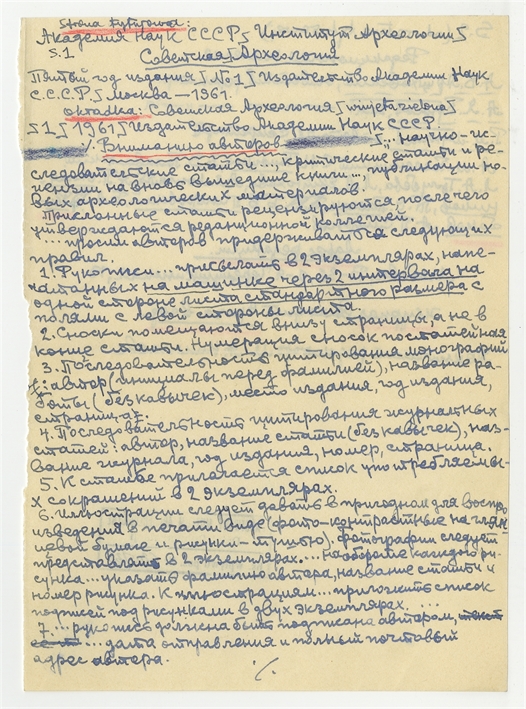 Strona tytułowa:
Академия Наук СССР/ Институт Археологии/
S.1 Советская/Археология
Пятый год издания/ №1/ Издательство Академии Наук
С.С.С.Р./ Москва — 1961.
okładka: Советская Археология/ winjeta zielona/
/1/ 1961/ Издательство Академии Наук СССР.
/. Вниманию авторов /... научно-ис-
следовательские статьи ..., критические статьи и ре-
цензии на вновь вышедшие книги ..., публикации но-
вых археологических материалов.
Присланные статьи рецензируются после чего
утверждаются редакционной коллегией.
... просит авторов придерживаться следующих
правил.
1. Рукописи ... присылать в 2 экземплярах, напе-
чатанных на машинке через 2 интервала на
одной стороне листа стандартного размера с
полями с левой стороны листа.
2. Сноски помещаются внизу страницы, а не в
конце статьи. Нумерация сносок постатейная
3. Последовательность цитирования монографий
: автор (инициалы перед фамилией), название ра-
боты (без кавычек), место издания, год издания,
страница.
4. Последовательность цитирования журнальных
статей: автор, название статьи (без кавычек), наз-
вание журнала, год издания, номер, страница.
5. К статье прилагается список употребляемы-
х сокращений в 2 экземплярах.
6. Иллюстрации следует давать в пригодном для воспро
изведения в печати виде (фото-контрастные на глян
цевой бумаге и рисунки - тушью). Фотографии следует
представлять в 2 экземплярах. ... на обороте каждого ри-
сунка ... указать фамилию автора, название статьи и
номер рисунка. К иллюстрациям ... приложить список
подписей под рисунками в двух экземплярах. ...
7. ... рукопись должна быть подписана автором,
... дата отправления и полный почтовый
адрес автора.
./.